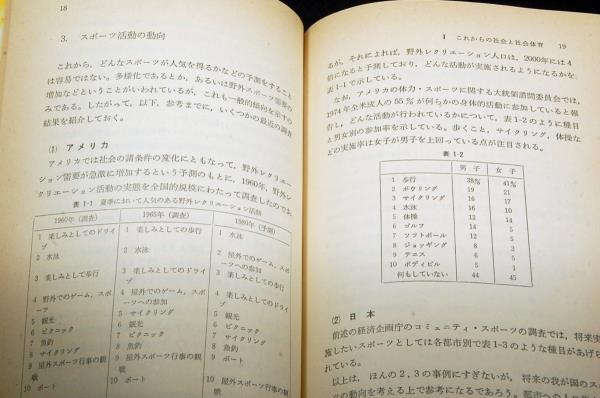 18
3. スポーツ活動の動向
これから、どんなスポーツが人気を得るかなどの予測をすること
は容易ではない。多様化であるとか、あるいは野外スポーツ需要の
増加などということがいわれているが、これも一般的傾向を示すの
みである。したがって、以下、参考までに、いくつかの最近の調査
結果を紹介しておく。
(1) アメリカ
アメリカでは社会の諸条件の変化にともなって、野外レクリエー
ション需要が急激に増加するという予測のもとに、1960年、野外レ
クリエーション活動の実態を全国的規模にわたって調査したのであ
表 1-1 夏季において人気のある野外レクリエーション活動
1960年（調査） 1965年（調査） 1980年（予測）
1 楽しみとしてのドライブ 1 楽しみとしての歩行 1 水泳
2 水泳 2 水泳 2 屋外でのゲーム、スポーツへの参加
3 楽しみとして歩行 3 楽しみとしてのドライブ 3 楽しみとしての歩行
4 野外でのゲーム、スポーツ 4 屋外でのゲーム、スポーツへの参加 4 楽しみとしてのドライブ
5 観光 5 サイクリング
6 ピクニック 6 観光
7 魚釣 7 ピクニック
8 サイクリング 8 魚釣
9 屋外スポーツ行事の観戦 9 屋外スポーツ行事の観戦 9 ボート
10 ボート 10 ボート 10 屋外スポーツ行事の観戦
I これからの社会と社会体育 19
るが、それによれば、野外レクリエーション人口は、2000年には4
倍になると予測しており、どんな活動が実施されるようになるかを
表1-1で示している。
なお、アメリカの体力・スポーツに関する大統領諮問委員会では、
1974年全米成人の55%が何らかの身体的活動に参加していると報
告し、どんな活動が行われているかについて、表1-2のように種目
と男女別の参加率を示している。歩くこと、サイクリング、体操な
どの実施率は女子が男子を上回っている点が注目される。
表 1-2
男子 女子
1 歩行 38% 41%
2 ボウリング 19 21
3 サイクリング 16 17
4 水泳 16 10
5 体操 13 14
6 ゴルフ 14 5
7 ソフトボール 12 5
8 ジョッギング 8 3
9 テニス 6 5
10 ボディビル 5 1
何もしていない 44 45
(2) 日本
前述の経済企画庁のコミュニティ・スポーツの調査では、将来実
施したいスポーツとしては各都市別で表1-3のような種目があげら
れている。
以上は、ほんの2,3の事例にすぎないが、将来の我が国のス
ポーツの動向を考える上で参考になるであろう。都市への人